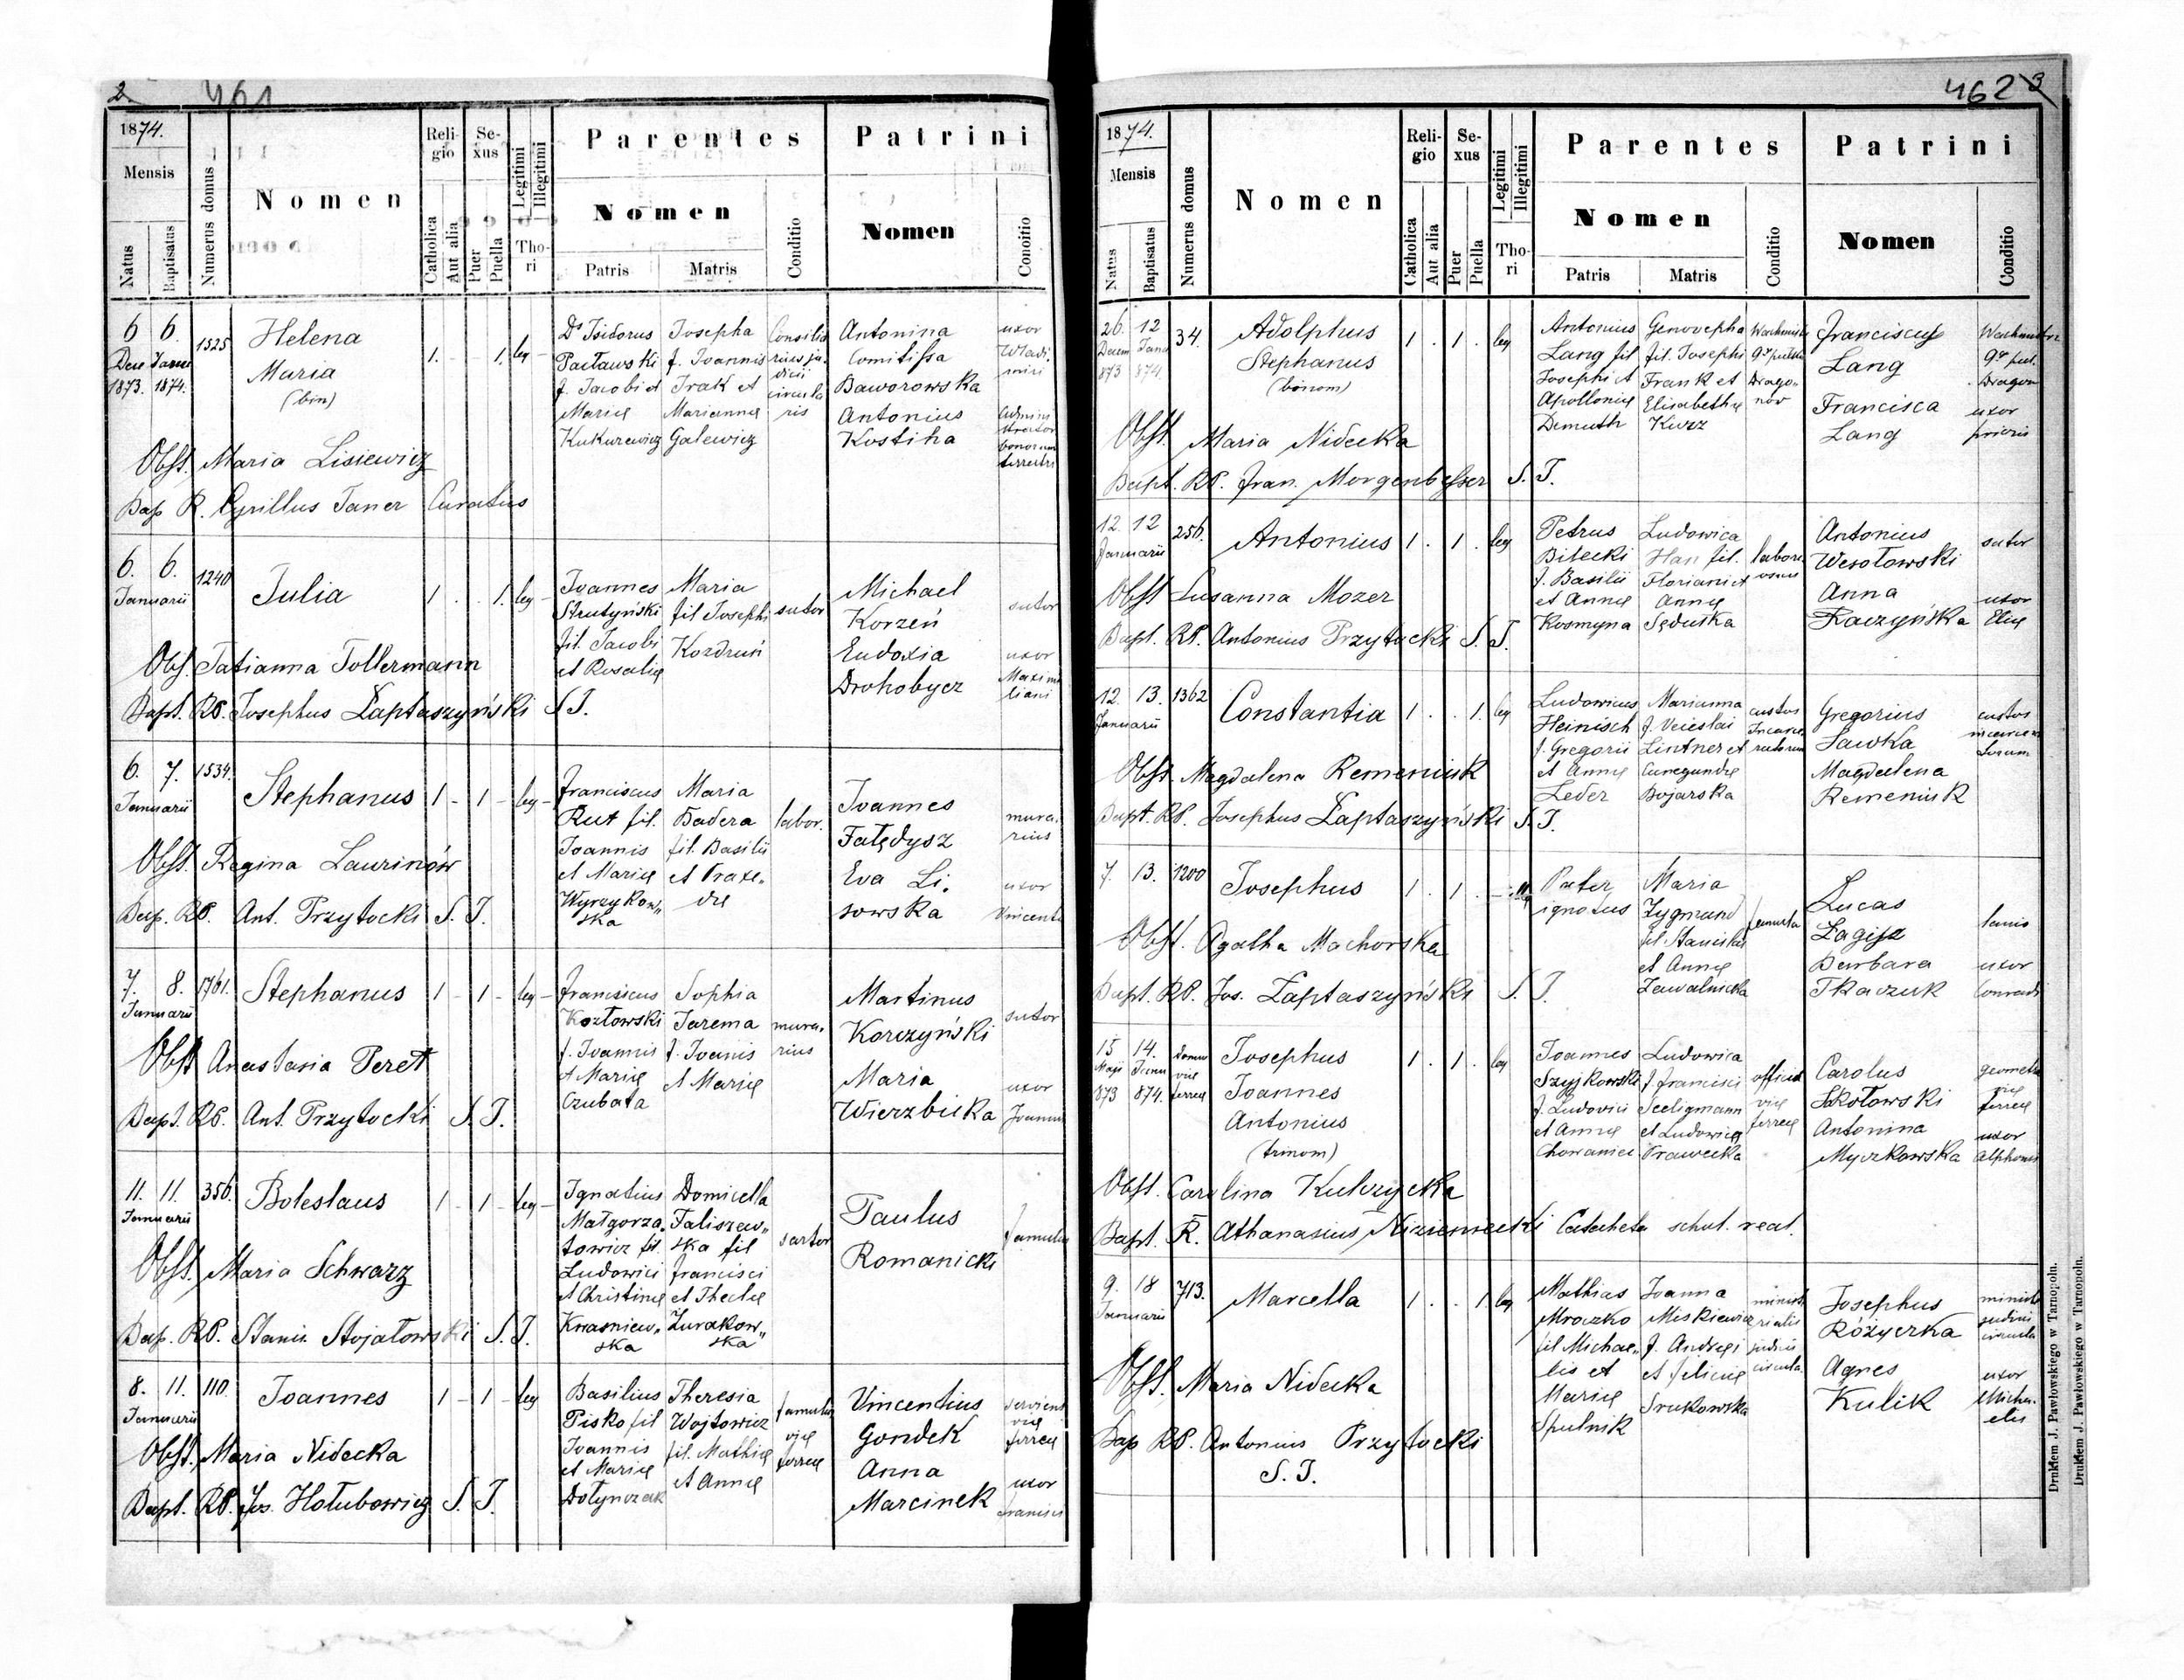 2 461
1874.
Mensis
Natus
Baptisatus
Numerus domus
Nomen
Religio
Catholica
Aut alia
Sexus
Puer
Puella
Legitimi
Illegitimi
Thori
Parentes
Nomen
Patris
Matris
Conditio
Patrini
Nomen
Conditio
6 6. 1525 Helena 1. 1. leg Dr Isidorus Josepha Antonina uxor
1873. 1874. Maria
(bin)
Pacławski f. Joannis Comitissa
f. Jacobi et Irak et Baworowska
Mariæ Mariannæ circularis Antonius
Kukurewicz Galewicz Kostiha
Obst. Maria Lisiewicz
Bap R. Cyrillus Janer Curatus
6. 6. 1240 Julia 1 1. leg Joannes Maria Michael
Januarii
Strutyński fil Josephi sutor Korzeń sutor
fil. Jacobi Kozdruń Eudoxia uxor
et Rosaliæ Drohobycz Maximiliani
Obs. Tatianna Tollermann
Bapt. RP. Josephus Łaptaszyński S J.
6. 7. 1534. Stephanus 1 - 1 - leg - Franciscus Maria Joannes
Januarii
Rut fil. Badera labor. Fałędysz murarius
Joannis fil. Basilii Eva Li.
et Mariæ et Praxe„ sowska uxor
Wyrzykow„ dæ Vincenti
ska
Obst. Regina Laurinów
Bap. RP. Ant. Przytocki S. J.
7. 8. 1761. Stephanus 1 - 1 - leg - Franciscus Sophia Martinus
Januarii
Kozłowski Jarema murarius Korczyński sutor
f. Joannis f. Joanis Maria uxor
et Mariæ et Mariæ Wierzbicka
Czubata
Obst Anastasia Peret
Bapt. RP. Ant. Przytocki S. J.
11. 11. 356. Boleslaus 1 - 1 - leg - Ignatius Domicella Paulus
Januarii
Małgorza„ Faliszew„ sartor Romanicki famulus
towicz fil. ska fil
Ludowici Francisci
et Christinæ et Theclæ
Krasniew„ Żurakow„
ska ska
Obst. Maria Schwarz
Bap. RP. Stanis. Stojałowski S. J.
8. 11. 110. Joannes 1 - 1 - leg Basilius Theresia famulus Vincentius
Januarii
Pisko fil Wojtowicz viæ Gondek viæ
Joannis fil. Mathiæ ferreæ Anna ferreæ
et Mariæ et Annæ Marcinek uxor
Dołynczak Francisci
Obst. Maria Nidecka
Bapt. RP. Jos. Hołubowicz S. J.
462 3
1874.
Mensis
Natus
Baptisatus
Numerus domus
Nomen
Religio
Catholica
Aut alia
Sexus
Puer
Puella
Legitimi
Illegitimi
Thori
Parentes
Nomen
Patris
Matris
Conditio
Patrini
Nomen
Conditio
26. 12 34. Adolphus 1 . 1 . leg Antonius Genovepha Franciscus
873 874. Stephanus
(binom)
Lang fil fil. Josephi Lang
Josephi et Frank et Dragonów
Apolloniæ Elisabethæ Francisca uxor
Demuth Kurz Lang prioris
Obst. Maria Nidecka
Bapt. RP. Fran. Morgenbesser S. J.
12. 12 256. Antonius 1 . 1 . leg Petrus Ludowica Antonius sutor
Januarii
Bilecki Han fil. Wesołowski
f. Basilii Floriani et Anna uxor
et Annæ Annæ Raczyńska Eliæ
Kosmyna Sęduška
Obst Susanna Mozer
Bapt. RP. Antonius Przytocki S. J.
12. 13. 1362 Constantia 1 . . 1. leg Ludowicus Marianna custos Gregorius custos
Januarii
Heinisch Sawka
f. Gregorii Lintner et Magdalena
et Annæ Cunegundæ Remeniuk
Leder Bojarska
Obst. Magdalena Remeniuk
Bapt. RP. Josephus Łaptaszyński S. J.
7. 13. 1200 Josephus 1 . 1 . Pater Maria Lucas lanio
ignotus Zygmund famula Łagisz
fil. Stanislai Barbara uxor
et Annæ Tkaczuk Conradi
Zawalnicka
Obst. Agatha Machorska
Bapt. RP. Jos. Łaptaszyński S. J.
15 14. domus Josephus 1 . 1 . leg Joannes Ludowica Carolus geometra
Maji viæ Joannes Szyjkowski f. Francisci Sokołowski viæ
873 874. ferreæ Antonius f. Ludovici Seeligmann viæ Antonina ferreæ
(trinom) et Annæ et Ludowicæ ferreæ Myczkowska uxor
Chowaniec Prawecka Alphonsi
Obst. Carolina Kulczycka
Bapt. R. Athanasius Nizieniecki Catecheta schol. real.
9. 18 713. Marcella 1 . . 1. leg Mathias Joanna Josephus
Januarii
Mroczko Miskiewicz Różycka
fil Michae„ f. Andreæ Agnes uxor
lis et et Feliciæ Kulik Michaelis
Mariæ Srukowska
Spulnik
Obst. Maria Nidecka
Bap RP. Antonius Przytocki
S. J.
Drukiem J. Pawłowskiego w Tarnopolu.
Drukiem J. Pawłowskiego w Tarnopolu.